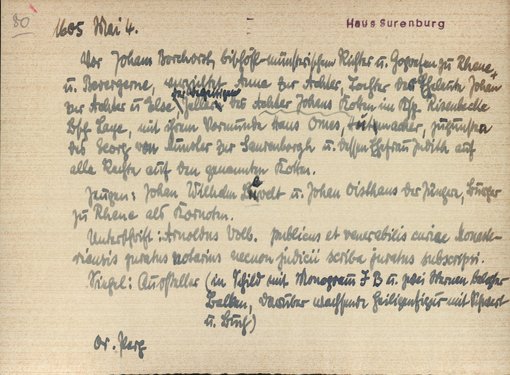 80 1605 Mai 4. Haus Surenburg
Vor Johan Borchorst bischöfl.-münsterischem Richter u. Gografen zu Rheine
u. Bevergerne, verzichtet Anna zur Achter, Tochter der Eheleute Johan
zur Achter u. Else, des Achter Johans Kotten im Ksp. Risenbecke
Bsch. Laye, mit ihrem Vormunde Hans Omes, zugunsten
des Georg von Munster zur Surenborgh u. dessen Ehefrau Judith auf
alle Rechte auf den genannten Kotten.
Zeugen: Johan Wilhelm u. Johan Oisthaus der Jüngere, Bürger
zu Rhene als Kornoten.
Unterschrift: Arnoldus Volb. publicus et venerabilis curiae Monaste-
riensis juratus notarius necnon judicii scriba juratus subscripsi.
Siegel: Aussteller (im Schild mit Monogram J B u. zwei Sternen belegter
Balken, darüber wachsende Heiligenfigur mit Schwert
u. Buch)
Or. Perg